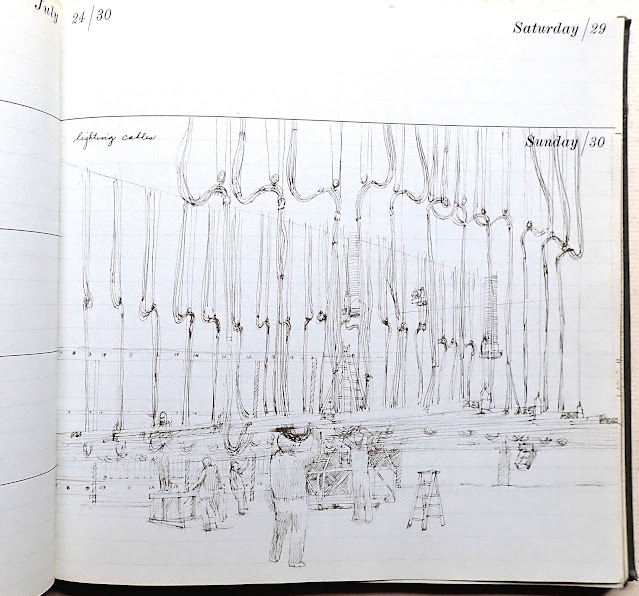 July 24/30
Saturday/29
lighting cables
Sunday/30